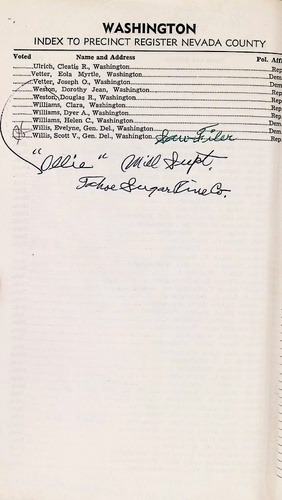 WASHINGTON
INDEX TO PRECINCT REGISTER NEVADA COUNTY
Voted Name and Address Pol. Affi
Ulrich, Cleatis R., Washington Rep
Vetter, Eola Myrtle, Washington Dem
Vetter, Joseph O., Washington Dem
Weston, Dorothy Jean, Washington Rep
Weston, Douglas R., Washington Rep
Williams, Clara, Washington Rep
Williams, Dyer A., Washington Rep
Williams, Helen C., Washington Dem
Willis, Evelyne, Gen. Del., Washington Dem
Willis, Scott V., Gen. Del., Washington Saw Filer Rep
"Ollie" Mill Supt.
Tahoe Sugar Pine Co.